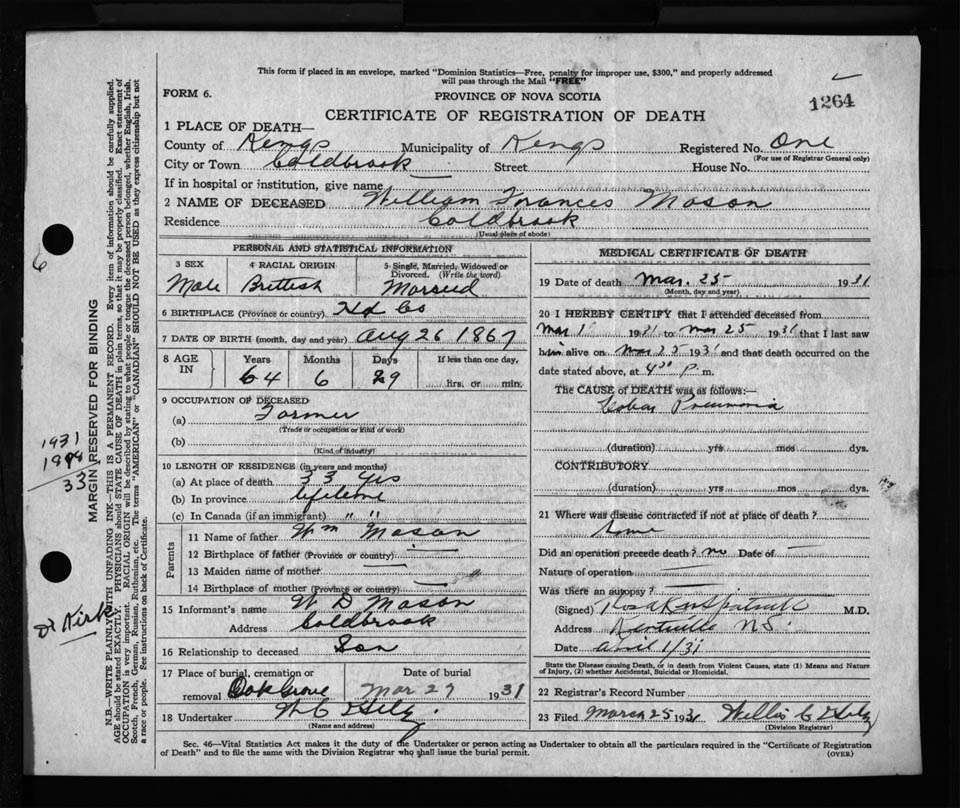 This form if placed in an envelope, marked "Dominion Statistics—Free, penalty for improper use, $300," and properly addressed
will pass through the Mail "FREE"
FORM 6.
PROVINCE OF NOVA SCOTIA
1264
CERTIFICATE OF REGISTRATION OF DEATH
1 PLACE OF DEATH—
County of Kings Municipality of Kings Registered No. One
(For use of Registrar General only)
City or Town Coldbrook Street House No.
If in hospital or institution, give name
2 NAME OF DECEASED William Frances Mason
Residence Coldbrook
(Usual place of abode)
PERSONAL AND STATISTICAL INFORMATION
3 SEX 4 RACIAL ORIGIN 5 Single, Married, Widowed or Divorced. (Write the word)
Male British Married
6 BIRTHPLACE (Province or country) Hx Co
7 DATE OF BIRTH (month, day and year) Aug 26 1867
8 AGE IN Years Months Days If less than one day,
64 6 29 hrs. or min.
9 OCCUPATION OF DECEASED
(a) Farmer
(Trade or occupation or kind of work)
(b)
(Kind of industry)
10 LENGTH OF RESIDENCE (in years and months)
(a) At place of death 33 yrs
(b) In province lifetime
(c) In Canada (if an immigrant) " "
Parents
11 Name of father Wm Mason
12 Birthplace of father (Province or country)
13 Maiden name of mother
14 Birthplace of mother (Province or country)
15 Informant's name W D Mason
Address Coldbrook
16 Relationship to deceased Son
17 Place of burial, cremation or removal Oak Grove Date of burial Mar 27 1931
18 Undertaker W C
(Name and address)
MEDICAL CERTIFICATE OF DEATH
19 Date of death Mar. 25 1931
(Month, day and year)
20 I HEREBY CERTIFY that I attended deceased from
Mar 1 1931 to Mar 25 1931 that I last saw
him alive on Mar 25 1931 and that death occurred on the
date stated above, at 4 30 p. m.
The CAUSE of DEATH was as follows:—
Lobar Pneumonia
(duration) yrs mos dys.
CONTRIBUTORY
(duration) yrs mos dys.
21 Where was disease contracted if not at place of death?
Home
Did an operation precede death? no Date of
Nature of operation
Was there an autopsy?
(Signed) Kirkpatrick M.D.
Address Kentville N.S.
Date April 1/31
State the Disease causing Death, or in death from Violent Causes, state (1) Means and Nature
of Injury, (2) whether Accidental, Suicidal or Homicidal.
22 Registrar's Record Number
23 Filed March 25 1931 Willis C
(Division Registrar)
Sec. 46—Vital Statistics Act makes it the duty of the Undertaker or person acting as Undertaker to obtain all the particulars required in the "Certificate of Registration
of Death" and to file the same with the Division Registrar who shall issue the burial permit.
(OVER)
MARGIN RESERVED FOR BINDING
N.B.—WRITE PLAINLY WITH UNFADING INK—THIS IS A PERMANENT RECORD. Every item of information should be carefully supplied.
AGE should be stated EXACTLY. PHYSICIANS should STATE CAUSE OF DEATH in plain terms, so that it may be properly classified. Exact statement of
OCCUPATION is very important. RACIAL ORIGIN will be described by stating to what people or tongue the deceased person belonged, whether English, Irish,
Scotch, French, German, Russian, Ruthenian, etc. The terms "AMERICAN" or "CANADIAN" SHOULD NOT BE USED as they express citizenship but not
a race or people. See instructions on back of Certificate.
6
1931
33
Dr Kirk